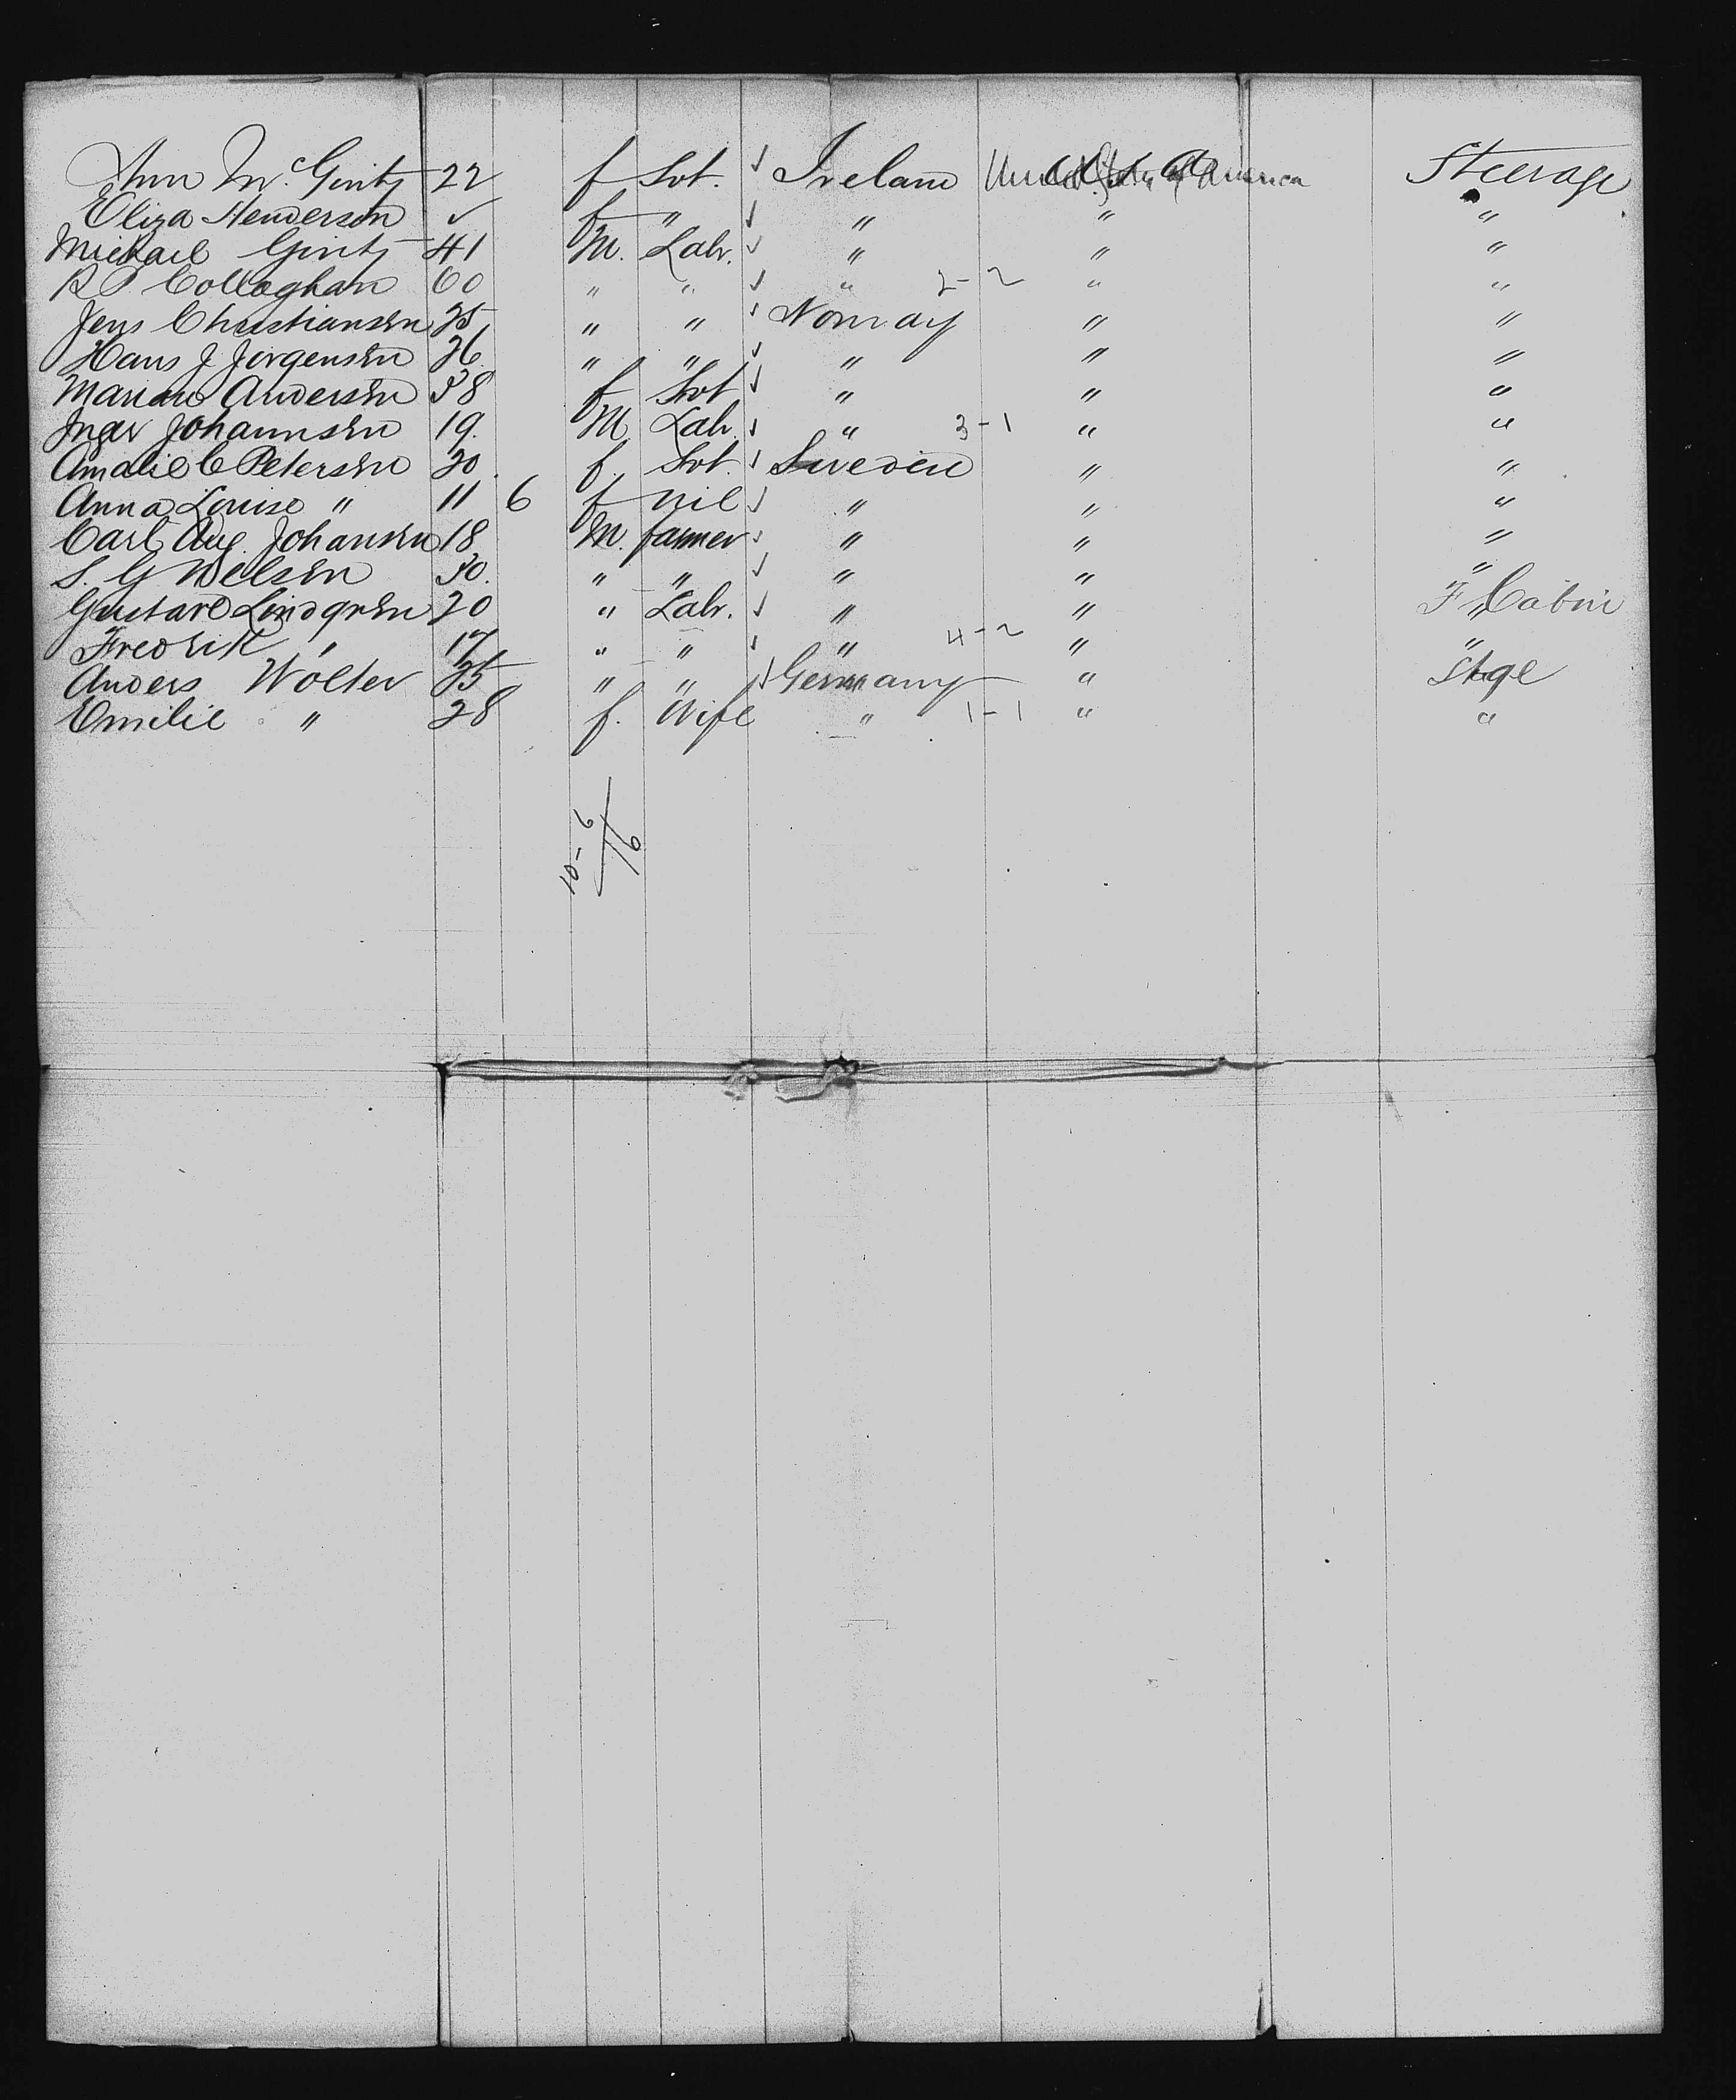 Ann McGinty 22 f Svt. ✓ Ireland United States of America Steerage
Eliza Henderson ✓ f " ✓ " " "
Michael Ginty 41 M. Labr. ✓ " " "
R P. Collaghan 60 " " ✓ " 2-2 " "
Jens Christiansen 25 " " ✓ Norway " "
Hans J Jorgensen 26 " " ✓ " " "
Andersen 38 f Svt ✓ " " "
Inger Johannsen 19. M Labr. ✓ " 3-1 " "
Amalie C Petersen 20. f. Svt. ✓ Sweden " "
Anna Louise " 11 6 f nil ✓ " " "
Carl Aug. Johansen 18 M. farmer ✓ " " "
S. G Nelsen 30. " " ✓ " " "
Gustave Lindgren 20 " Labr. ✓ " " F Cabin
Fredrik " 17 " " ✓ " 4-2 " "
Anders Wolter 25 " " ✓ Germany " Stge
Emilie " 28 f. Wife " 1-1 " "
10-6
16